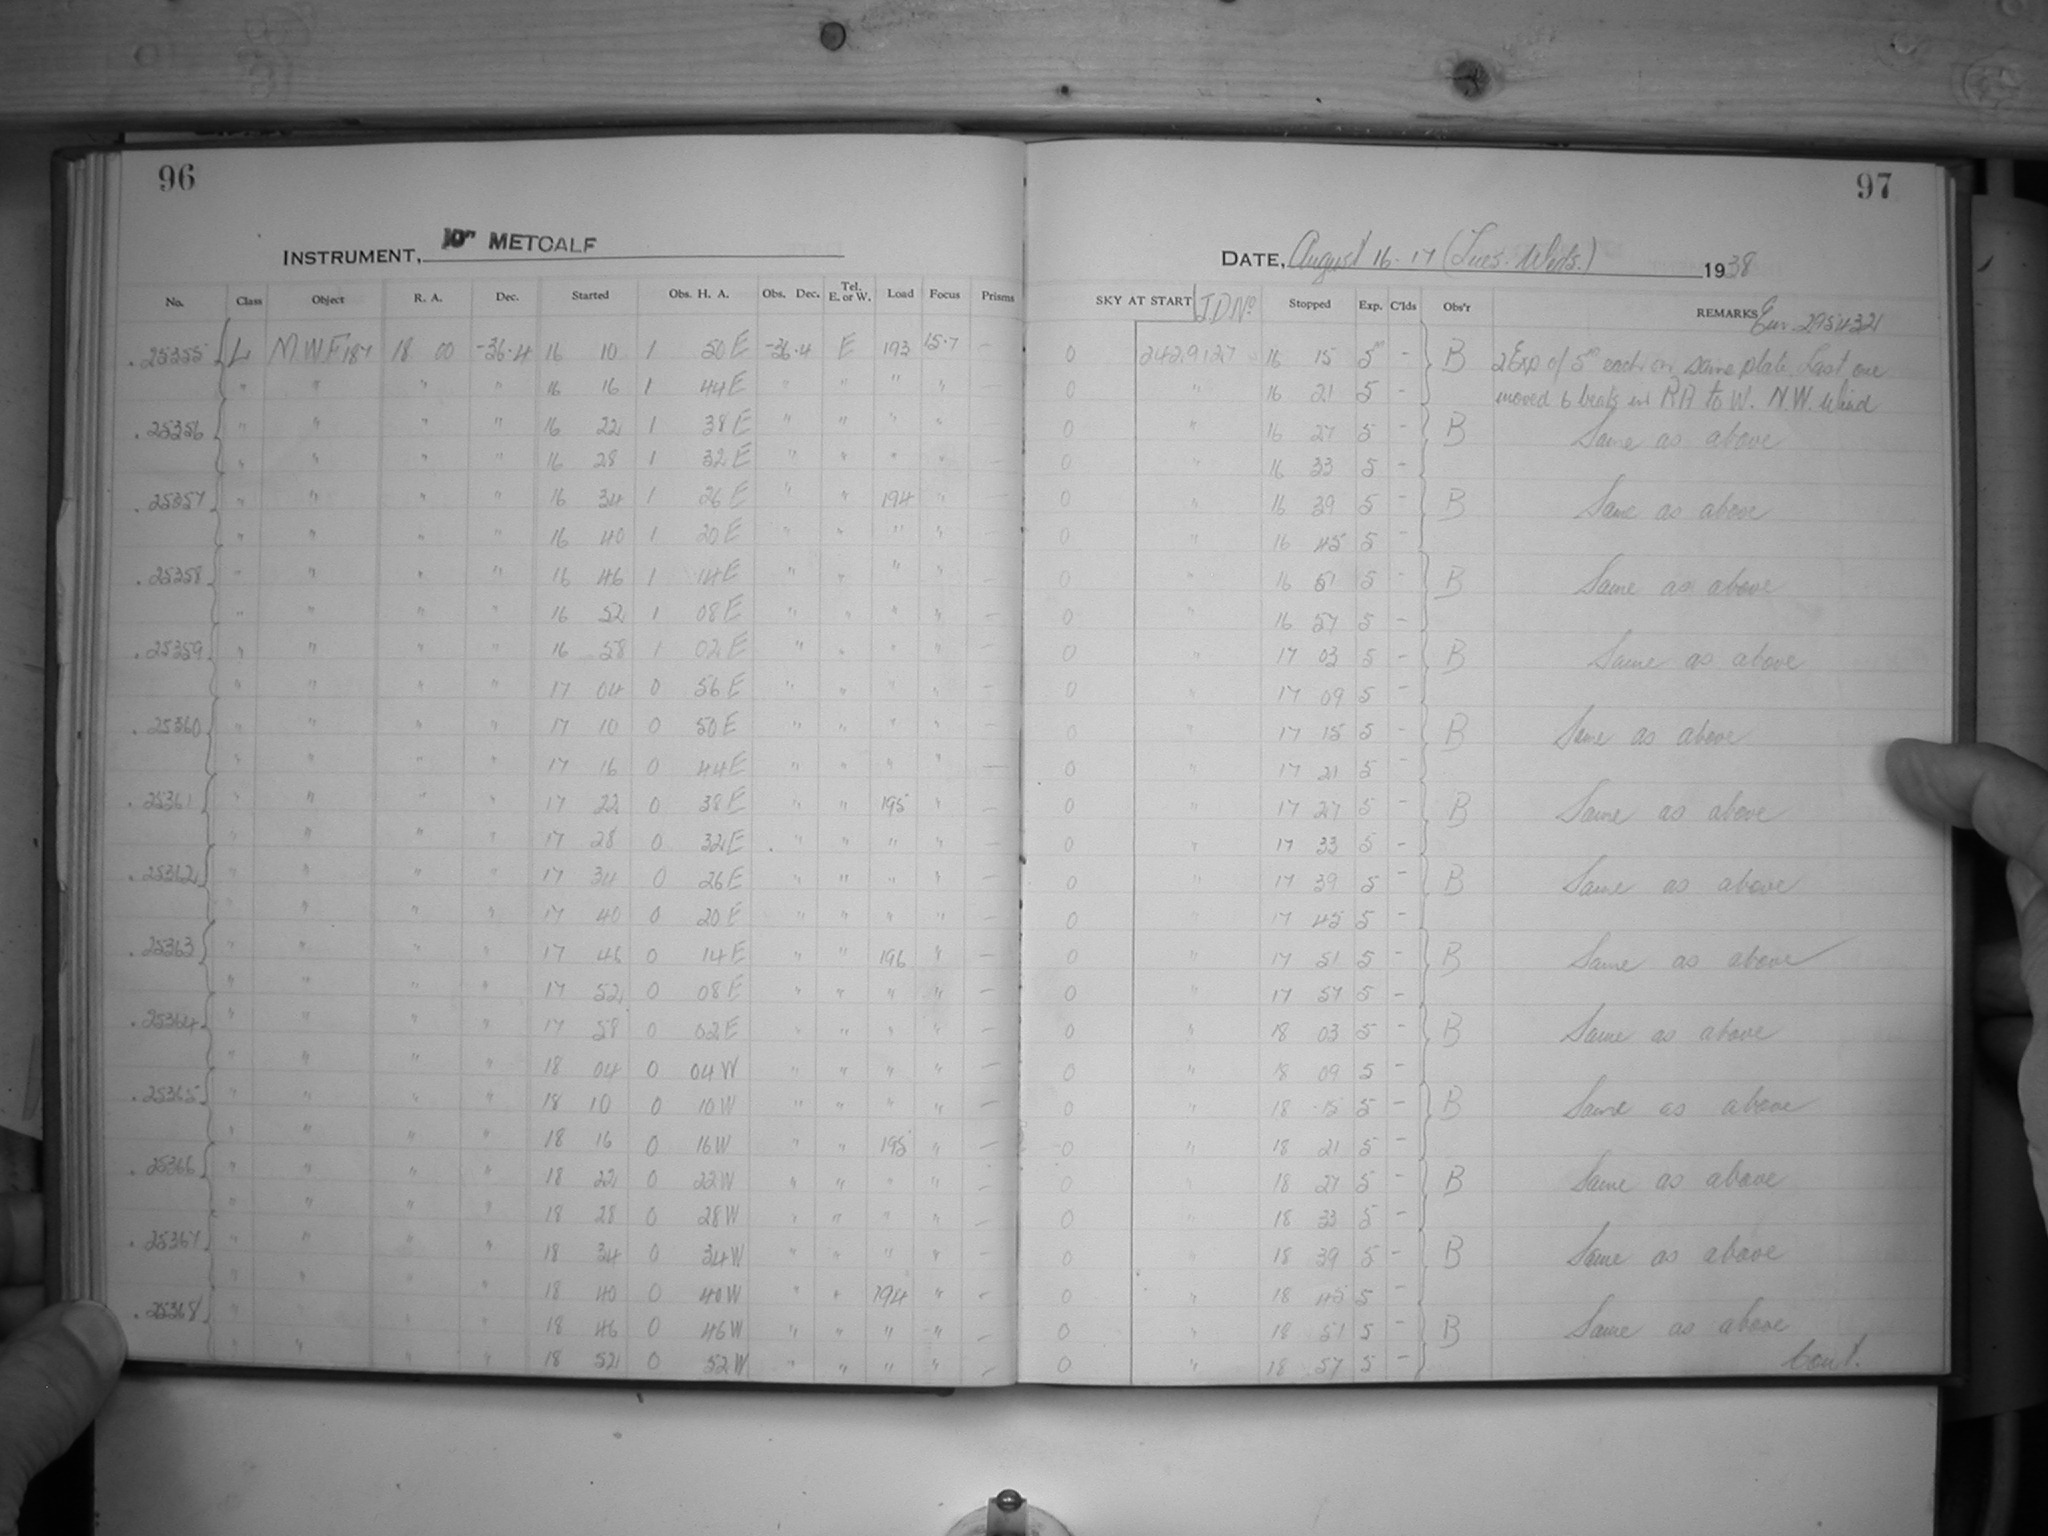 96
97
INSTRUMENT, 10" METCALF
DATE, August 16-17 (Tues. Weds.) 1938
No. Class Object R. A. Dec. Started Obs. H. A. Obs. Dec. Tel. E. or W. Load Focus Prisms SKY AT START J.D. No. Stopped Exp. C'lds Obs'r REMARKS 2954321
25355 L M.W.F 187 18 00 -36.4 16 10 1 50 E -36.4 E 193 15.7 0 2429127 16 15 5m - B 2 Exp of 5m each on same plate. Last one
" " " " 16 16 1 44 E " " " " 0 " 16 21 5 - moved 6 beats in RA to W. N.W. Wind
25356 " " " " 16 22 1 38 E " " " " 0 " 16 27 5 - B Same as above
" " " " 16 28 1 32 E " " " " - 0 " 16 33 5 -
25357 " " " " 16 34 1 26 E " " 194 " - 0 " 16 39 5 - B Same as above
" " " " 16 40 1 20 E " " " " - 0 " 16 45 5 -
25358 " " " " 16 46 1 14 E " " " " - 0 " 16 51 5 - B Same as above
" " " " 16 52 1 08 E " " " " - 0 " 16 57 5 -
25359 " " " " 16 58 1 02 E " " " " - 0 " 17 03 5 - B Same as above
" " " " 17 04 0 56 E " " " " - 0 " 17 09 5 -
25360 " " " " 17 10 0 50 E " " " " - 0 " 17 15 5 - B Same as above
" " " " 17 16 0 44 E " " " " - 0 " 17 21 5 -
25361 " " " " 17 22 0 38 E " " 195 " - 0 " 17 27 5 - B Same as above
" " " " 17 28 0 32 E " " " " - 0 " 17 33 5 -
25362 " " " " 17 34 0 26 E " " " " - 0 " 17 39 5 - B Same as above
" " " " 17 40 0 20 E " " " " - 0 " 17 45 5 -
25363 " " " " 17 46 0 14 E " " 196 " - 0 " 17 51 5 - B Same as above
" " " " 17 52 0 08 E " " " " - 0 " 17 57 5 -
25364 " " " " 17 58 0 02 E " " " " - 0 " 18 03 5 - B Same as above
" " " " 18 04 0 04 W " " " " - 0 " 18 09 5 -
25365 " " " " 18 10 0 10 W " " " " - 0 " 18 15 5 - B Same as above
" " " " 18 16 0 16 W " " 195 " - 0 " 18 21 5 -
25366 " " " " 18 22 0 22 W " " " " - 0 " 18 27 5 - B Same as above
" " " " 18 28 0 28 W " " " " - 0 " 18 33 5 -
25367 " " " " 18 34 0 34 W " " " " - 0 " 18 39 5 - B Same as above
" " " " 18 40 0 40 W " " 194 " - 0 " 18 45 5 -
25368 " " " " 18 46 0 46 W " " " " - 0 " 18 51 5 - B Same as above
" " " " 18 52 0 52 W " " " " - 0 " 18 57 5 - Cont.